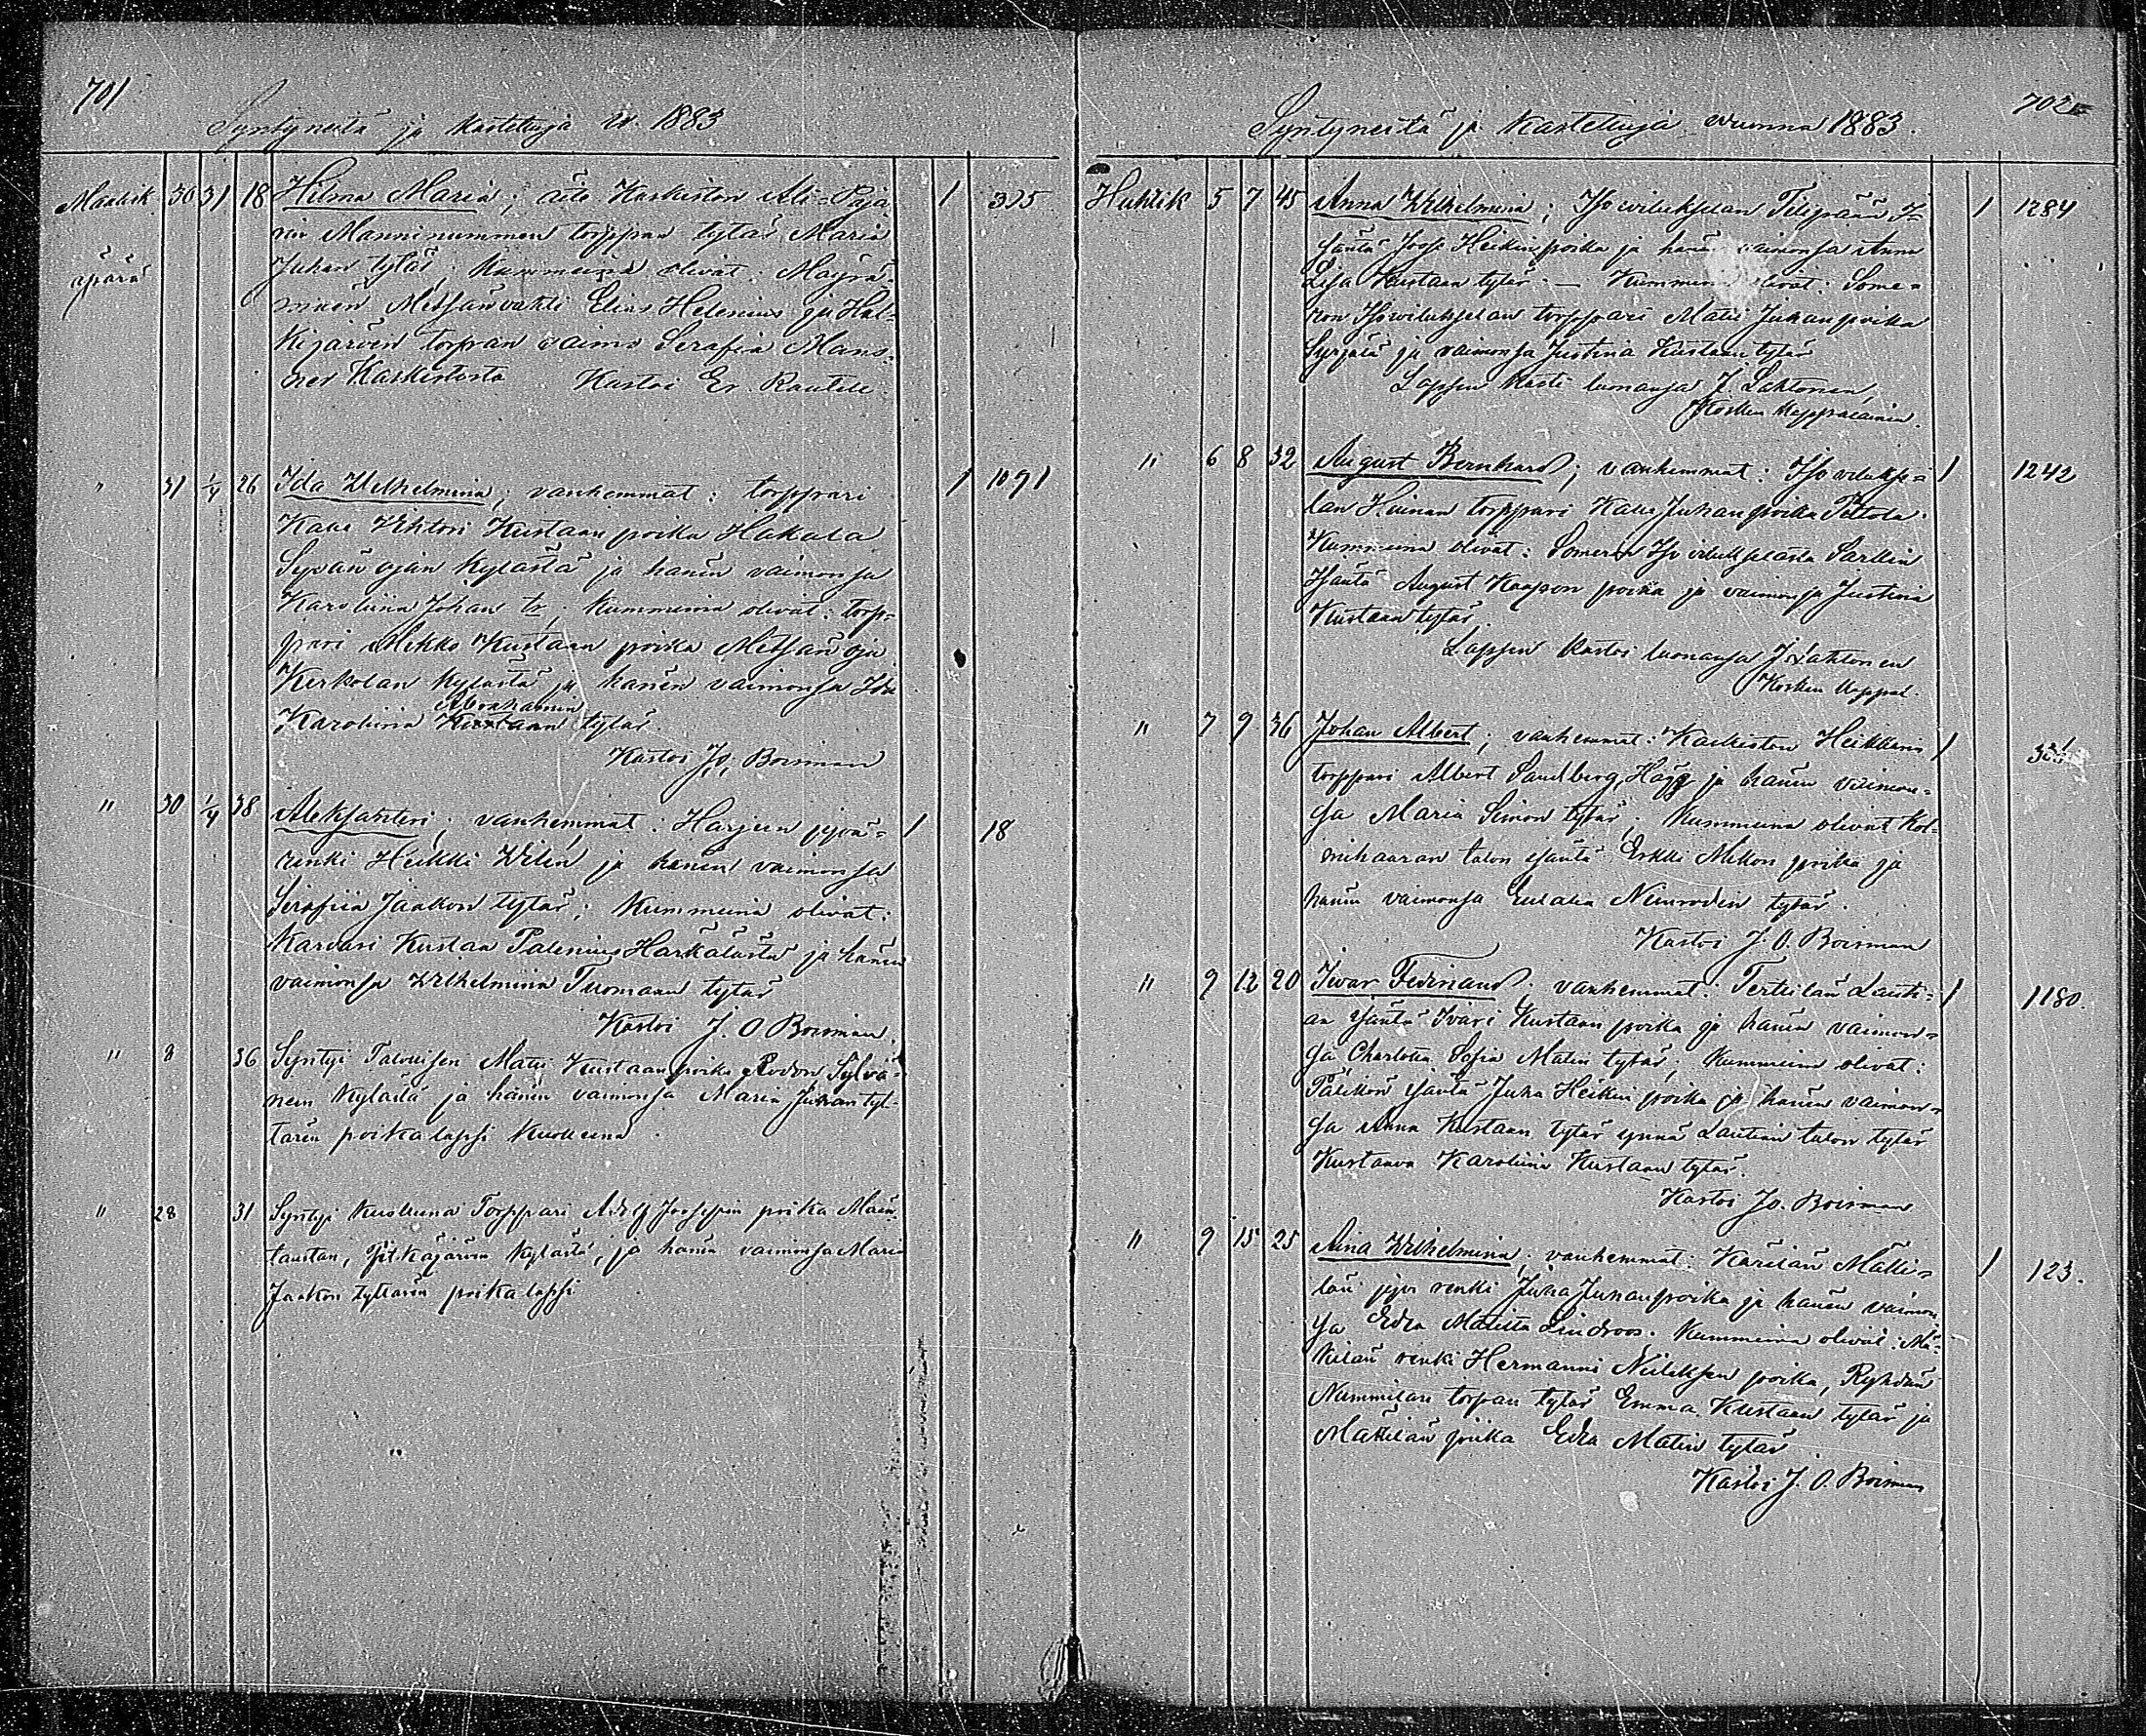 701
Syntyneitä ja kastetuja v. 1883
Maalisk. 30 31 18 Hilma Maria; äiti Kaskiston Ali-Paja- 1 395
rin Manninummen torppan tytär Maria
äpärä Juhan tytär; Kummeina olivat: Mäyrä-
mäen Metsänvahti Elias Helenius ja Hal-
kijärven torpan vaimo Serafia Mans-
ner Kaskistosta Kastoi Er. Rautell
" 31 1/4 26 Ida Wilhelmina; vanhemmat: torppari 1 1091
Kalle Wihtori Kustaan poika Hakala
Syvänojan kylästä ja hänen vaimonsa
Karoliina Johans tr. Kummeina olivat: torp-
pari Mikko Kustaan poika Metsänoja
Kerkolan kylästä ja hänen vaimonsa Ida
Abrahamin
Karoliina Kustaan tytär
Kastoi Jo. Boisman
" 30 1/4 38 Aleksanteri; vanhemmat: Harjun jyvä- 1 18
renki Heikki Wilén ja hänen vaimonsa
Serafiia Jaakon tytär; Kummeina olivat:
Karvari Kustaa Palenius Härkälästä ja hänen
vaimonsa Wilhelmina Tuomaan tytär
Kastoi J. O. Boisman
" 8 36 Syntyi Talollisen Matti Kustaan poika Sylvä-
nen kylästä ja hänen vaimonsa Maria Juhan tyt-
tären poikalapsi kuolleena.
" 28 31 Syntyi kuolleena Torppari Adolf Joosepin poika Mäen-
taustan, Pitkäjärven kylästä, ja hänen vaimonsa Maria
Jaakon tyttären poikalapsi
702
Syntyneitä ja kastetuja vuonna 1883.
Huhtik 5 7 45 Anna Wilhelmina; Isovilukselan Filppulan I- 1 1284
säntä Joose Heikin poika ja hänen vaimonsa Anna
Liisa Kustaan tytär. — Kummeina olivat: Some-
ron Isovilukselan torppari Matti Juhan poika
Syrjälä ja vaimonsa Justina Kustaan tytär
Lapsen kasti luonansa J. Lahtonen,
Kosken kappalainen.
" 6 8 32 August Bernhard; vanhemmat: Isovilukse- 1 1242
lan Heinun torppari Kalle Juhan poika Peltola.
Kummeina olivat: Someron Isovilukselasta Parkin
Isäntä August Kaapon poika ja vaimonsa Justina
Kustaan tytär.
Lapsen kastoi luonansa J. Lahtonen
Kosken kappal.
" 7 9 36 Johan Albert; vanhemmat: Kaskiston Heikkerin 1
torppari Albert Sandberg, Hägg ja hänen vaimon-
sa Maria Simon tytär. Kummeina olivat Kol-
mihaaran talon isäntä Erkki Mikon poika ja
hänen vaimonsa Eulalia Nimrodin tytär.
Kastoi J. O. Boisman
" 9 12 20 Iwar Ferdinand. vanhemmat: Terttilän Lauti- 1 1180.
an isäntä Ivari Kustaan poika ja hänen vaimon-
sa Charlotta Sofia Matin tytär; Kummeina olivat:
Palikon isäntä Juha Heikin poika ja hänen vaimon-
sa Anna Kustaan tytär ynnä Lautian talon tytär
Kustaava Karoliina Kustaan tytär.
Kastoi Jo. Boisman
" 9 15 25 Aina Wilhelmina; vanhemmat: Kärilän Mäki- 1 123.
län jyvä renki Juha Juhan poika ja hänen vaimon
sa Edla Matilta Lindroos. Kummeina olivat: Mä-
kilän renki Hermanni Niileksen poika, Ryhdän
Nummilan torpan tytär Emma Kustaan tytär ja
Mäkilän piika Edla Matin tytär
Kastoi J. O. Boisman